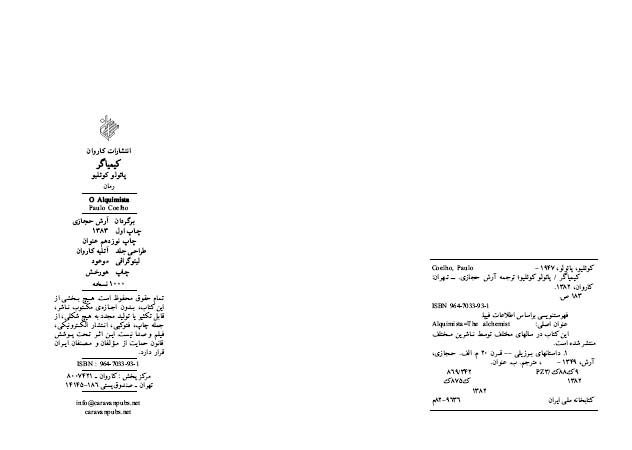 انتشارات کاروان
کیمیاگر
پائولو کوئلیو
رمان
O Alquimista
Paulo Coelho
برگردان آرش حجازی
چاپ اول ۱۳۸۳
چاپ نوزدهم عنوان
طراحی جلد آتلیه کاروان
لیتوگرافی موعود
چاپ هورخش
۱۰۰۰ نسخه
تمام حقوق محفوظ است. هیچ بخشی از
این کتاب، بدون اجازه‌ی مکتوب ناشر،
قابل تکثیر یا تولید مجدد به هیچ شکلی، از
جمله چاپ، فتوکپی، انتشار الکترونیکی،
فیلم و صدا نیست. این اثر تحت پوشش
قانون حمایت از مؤلفان و مصنفان ایران
قرار دارد.
ISBN : 964-7033-93-1
مرکز پخش : کاروان ـ ۸۰۰۷۴۲۱
تهران ـ صندوق پستی ۱۸۶-۱۴۱۴۵
info@caravanpubs.net
caravanpubs.net
کوئلیو، پائولو، ۱۹۴۷ - Coelho, Paulo
کیمیاگر / پائولو کوئلیو؛ ترجمه آرش حجازی. ـ تهران:
کاروان، ۱۳۸۲.
۱۸۳ ص.
ISBN 964-7033-93-1
فهرستنویسی براساس اطلاعات فیپا.
عنوان اصلی: Alquimista=The alchemist
این کتاب در سالهای مختلف توسط ناشرین مختلف
منتشر شده است.
۱. داستانهای برزیلی -- قرن ۲۰ م. الف. حجازی،
آرش، ۱۳۴۹ - ، مترجم. ب. عنوان.
۹ک۸۸ک/PZ۳ ۸۶۹/۳۴۲
۱۳۸۲ ک۸۷۵ک
۱۳۸۲
کتابخانه ملی ایران ۹۶۳۶-۸۲م